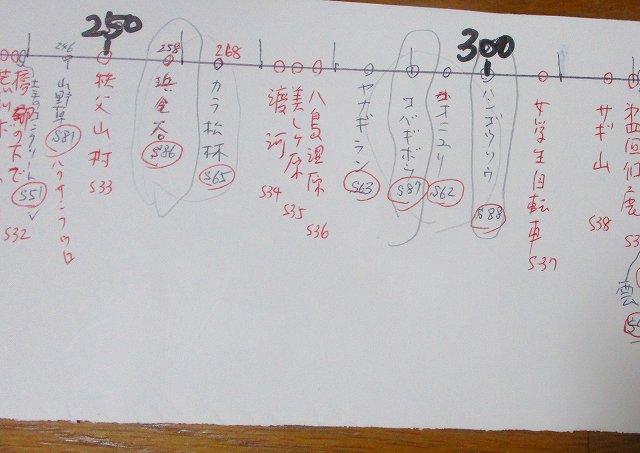 250
300
246
258
268
橋の下で
S51
S32
山野草
S81
ハクサンフウロ
秩父山村
S33
浜金谷
S86
カラ松林
S65
渡河
S34
美しヶ原
S35
八島湿原
S36
ヤナギラン
S63
コバギボウシ
S87
オニユリ
S62
ハンゴウソウ
S88
女学生自転車
S37
サギ山
S38
雲